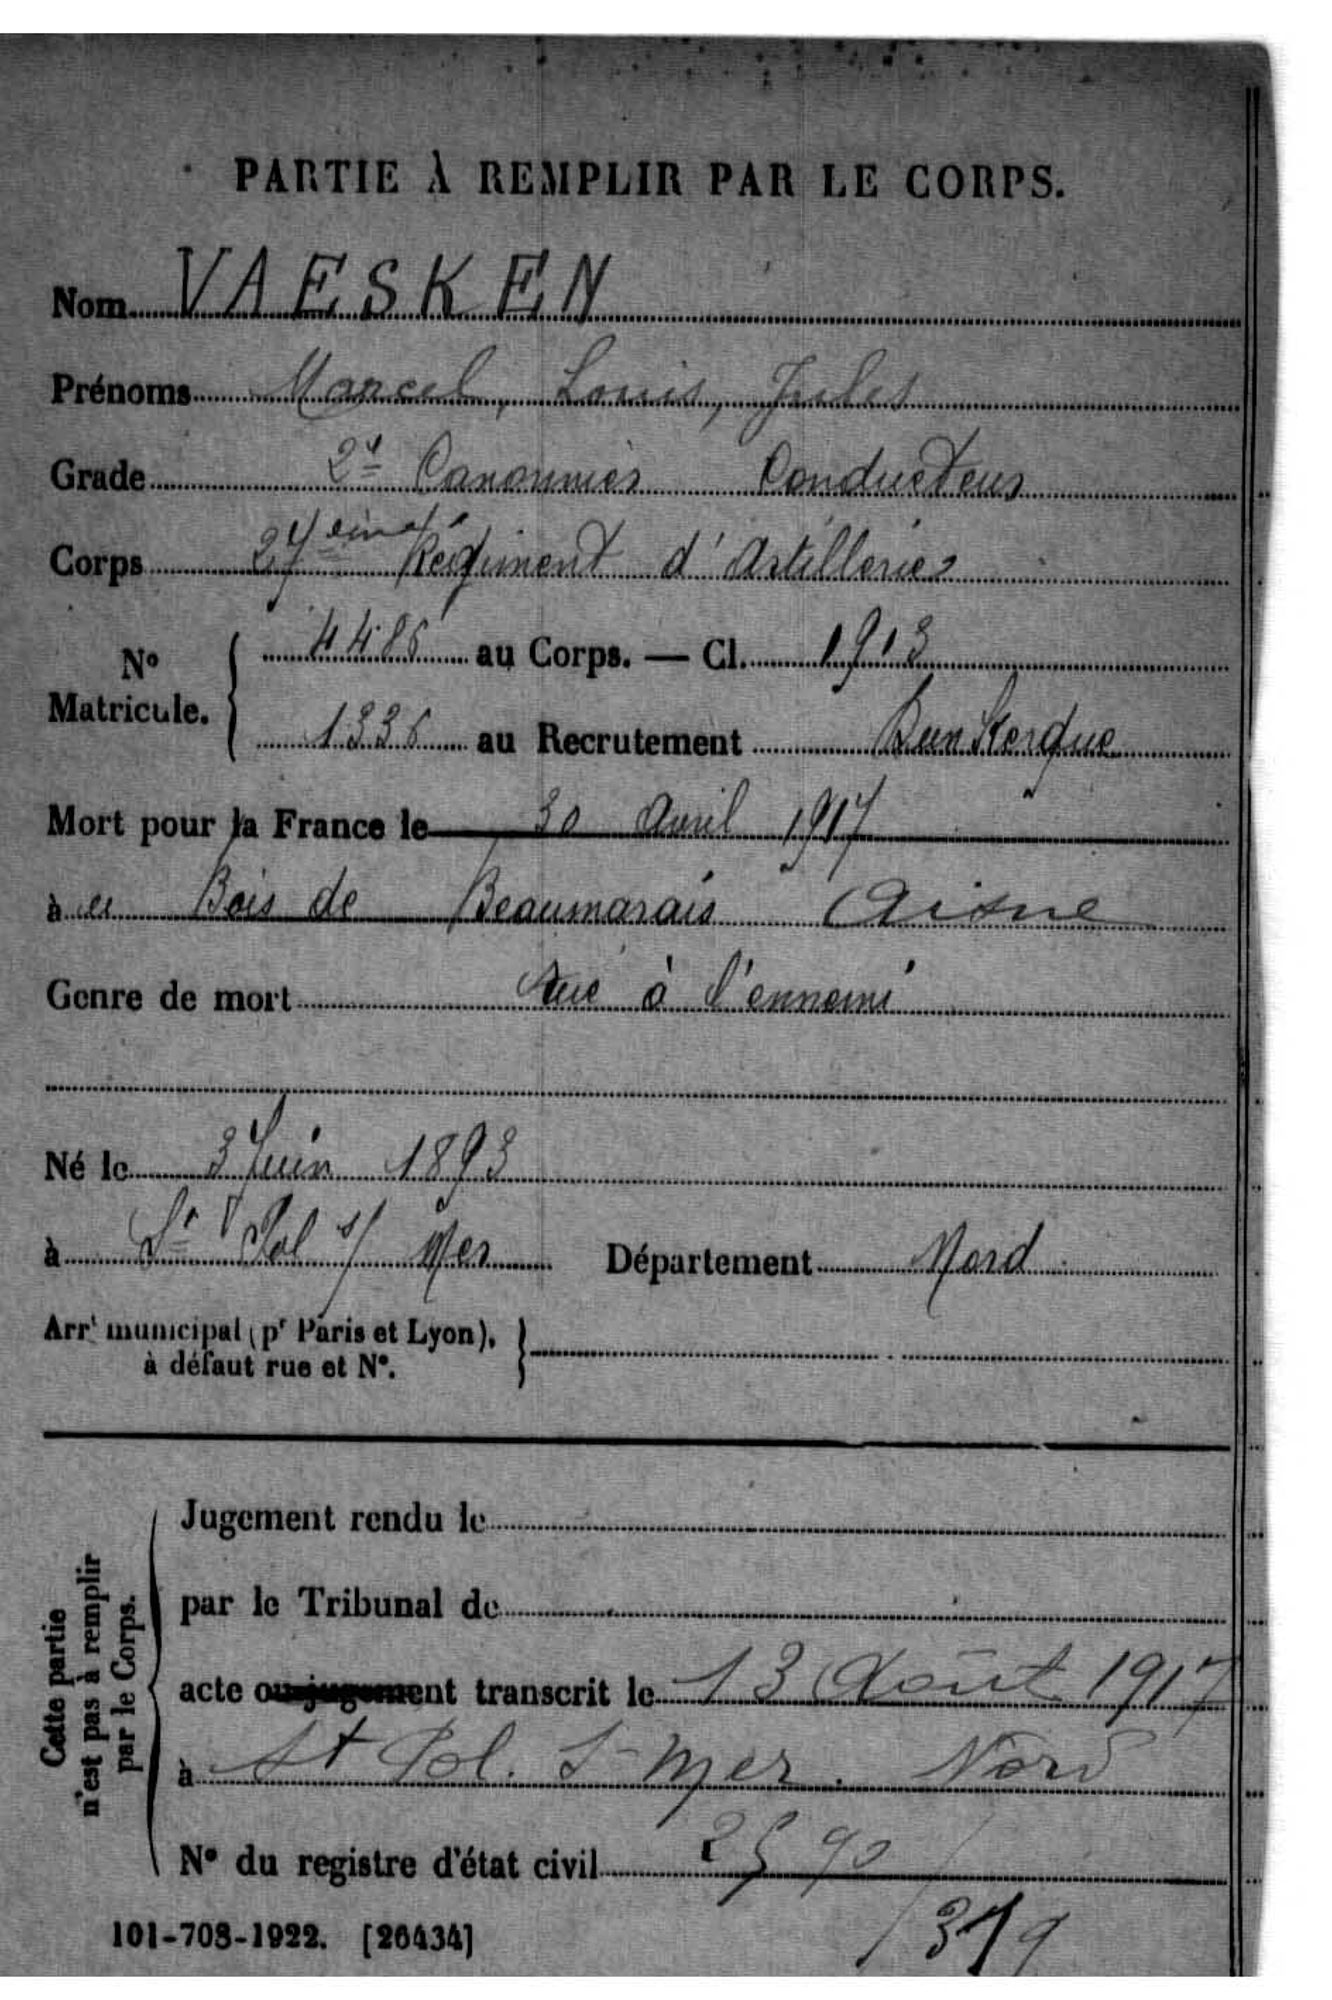 PARTIE À REMPLIR PAR LE CORPS.
Nom VAESKEN
Prénoms Marcel, Louis, Jules
Grade 2e Canonnier Conducteur
Corps 27ème Régiment d'Artillerie
No Matricule. 4486 au Corps. — Cl. 1913
1336 au Recrutement Dunkerque
Mort pour la France le 30 Avril 1917
à u Bois de Beaumarais Aisne
Genre de mort tué à l'ennemi
Né le 3 Juin 1893
à St Pol s/ Mer Département Nord
Arrt municipal (pr Paris et Lyon),
à défaut rue et N°.
Cette partie
n'est pas à remplir
par le Corps.
Jugement rendu le
par le Tribunal de
acte ou jugement transcrit le 13 Août 1917
à St Pol. s- mer. Nord
N° du registre d'état civil 2590
101-708-1922. [26434]
/379